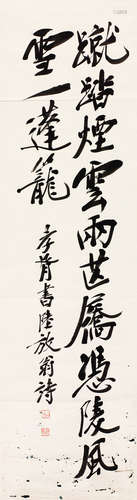 蹴踏煙雲兩芒屩憑陵風
雪一蓬籠
孝胥書陸放翁詩